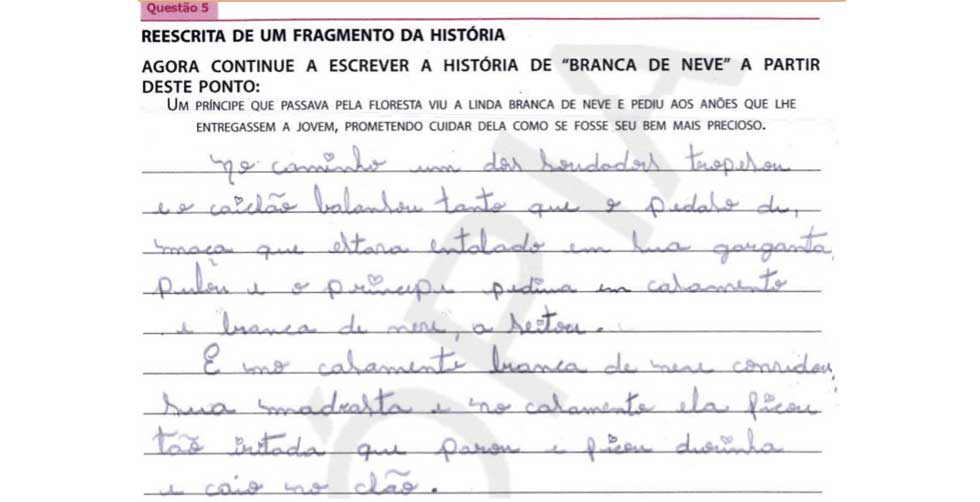 Questão 5
REESCRITA DE UM FRAGMENTO DA HISTÓRIA
AGORA CONTINUE A ESCREVER A HISTÓRIA DE “BRANCA DE NEVE” A PARTIR
DESTE PONTO:
UM PRÍNCIPE QUE PASSAVA PELA FLORESTA VIU A LINDA BRANCA DE NEVE E PEDIU AOS ANÕES QUE LHE
ENTREGASSEM A JOVEM, PROMETENDO CUIDAR DELA COMO SE FOSSE SEU BEM MAIS PRECIOSO.
no caminho um dos soudados tropesou
e o caichão balansou tanto que o pedaso de,
maça que estava entalado em sua garganta,
pulou e o príncipe pediua em casamento
e branca de neve, a seitou.
E no casamento branca de neve convidou,
sua madrasta e no casamento ela ficou
tão iritada que parou e ficou durinha
e caio no chão.
CÓPIA